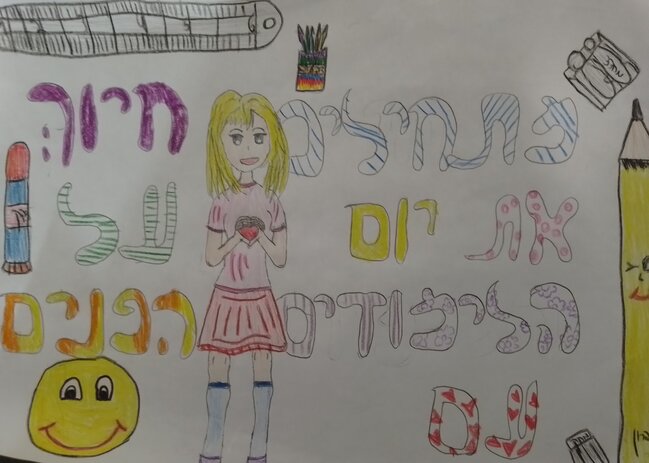 מתחילים
את יום
הלימודים
עם
חיוך
על
הפנים
מחק